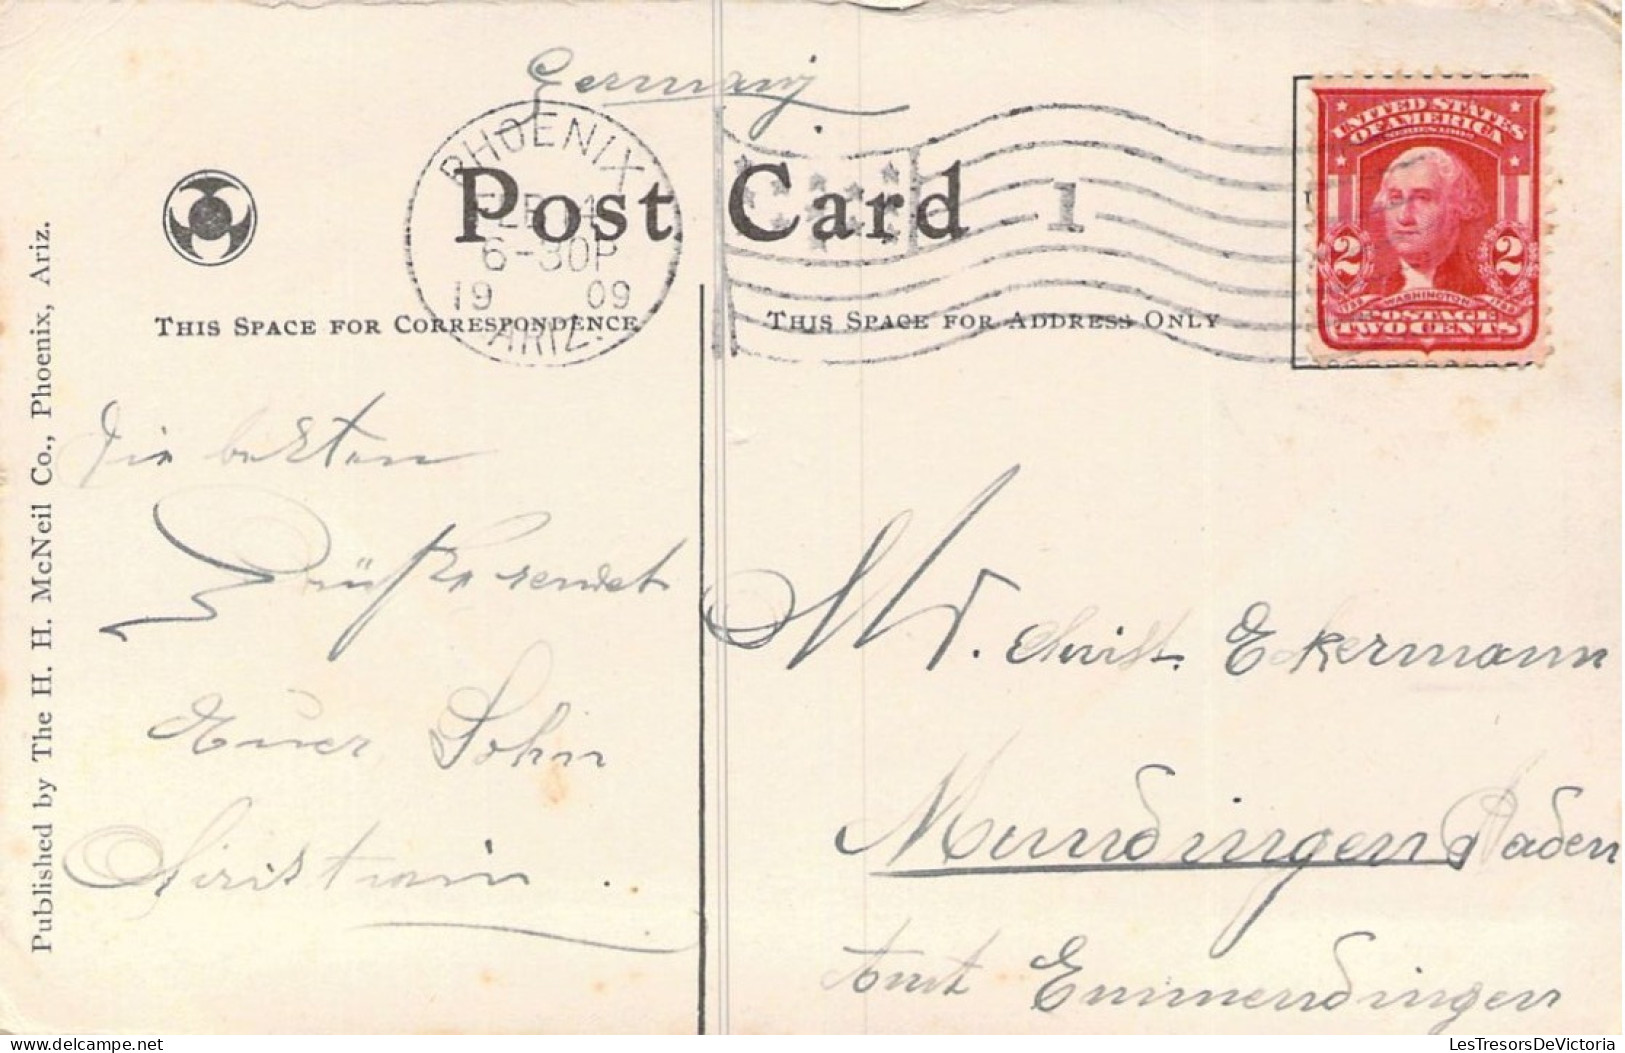 Germany
PHOENIX
FEB
6-30P
19 09
ARIZ.
1
Post Card
UNITED STATES
OF AMERICA
SERIES 1902
2 2
WASHINGTON
POSTAGE
TWO CENTS
THIS SPACE FOR CORRESPONDENCE
THIS SPACE FOR ADDRESS ONLY
Die besten
Grüße sendet
Euer Sohn
Christian.
Mr. Christ. Eckermann
Mundingen Baden
Amt Emmendingen
Published by The H. H. McNeil Co., Phoenix, Ariz.
LesTresorsDeVictoria
delcampe.net